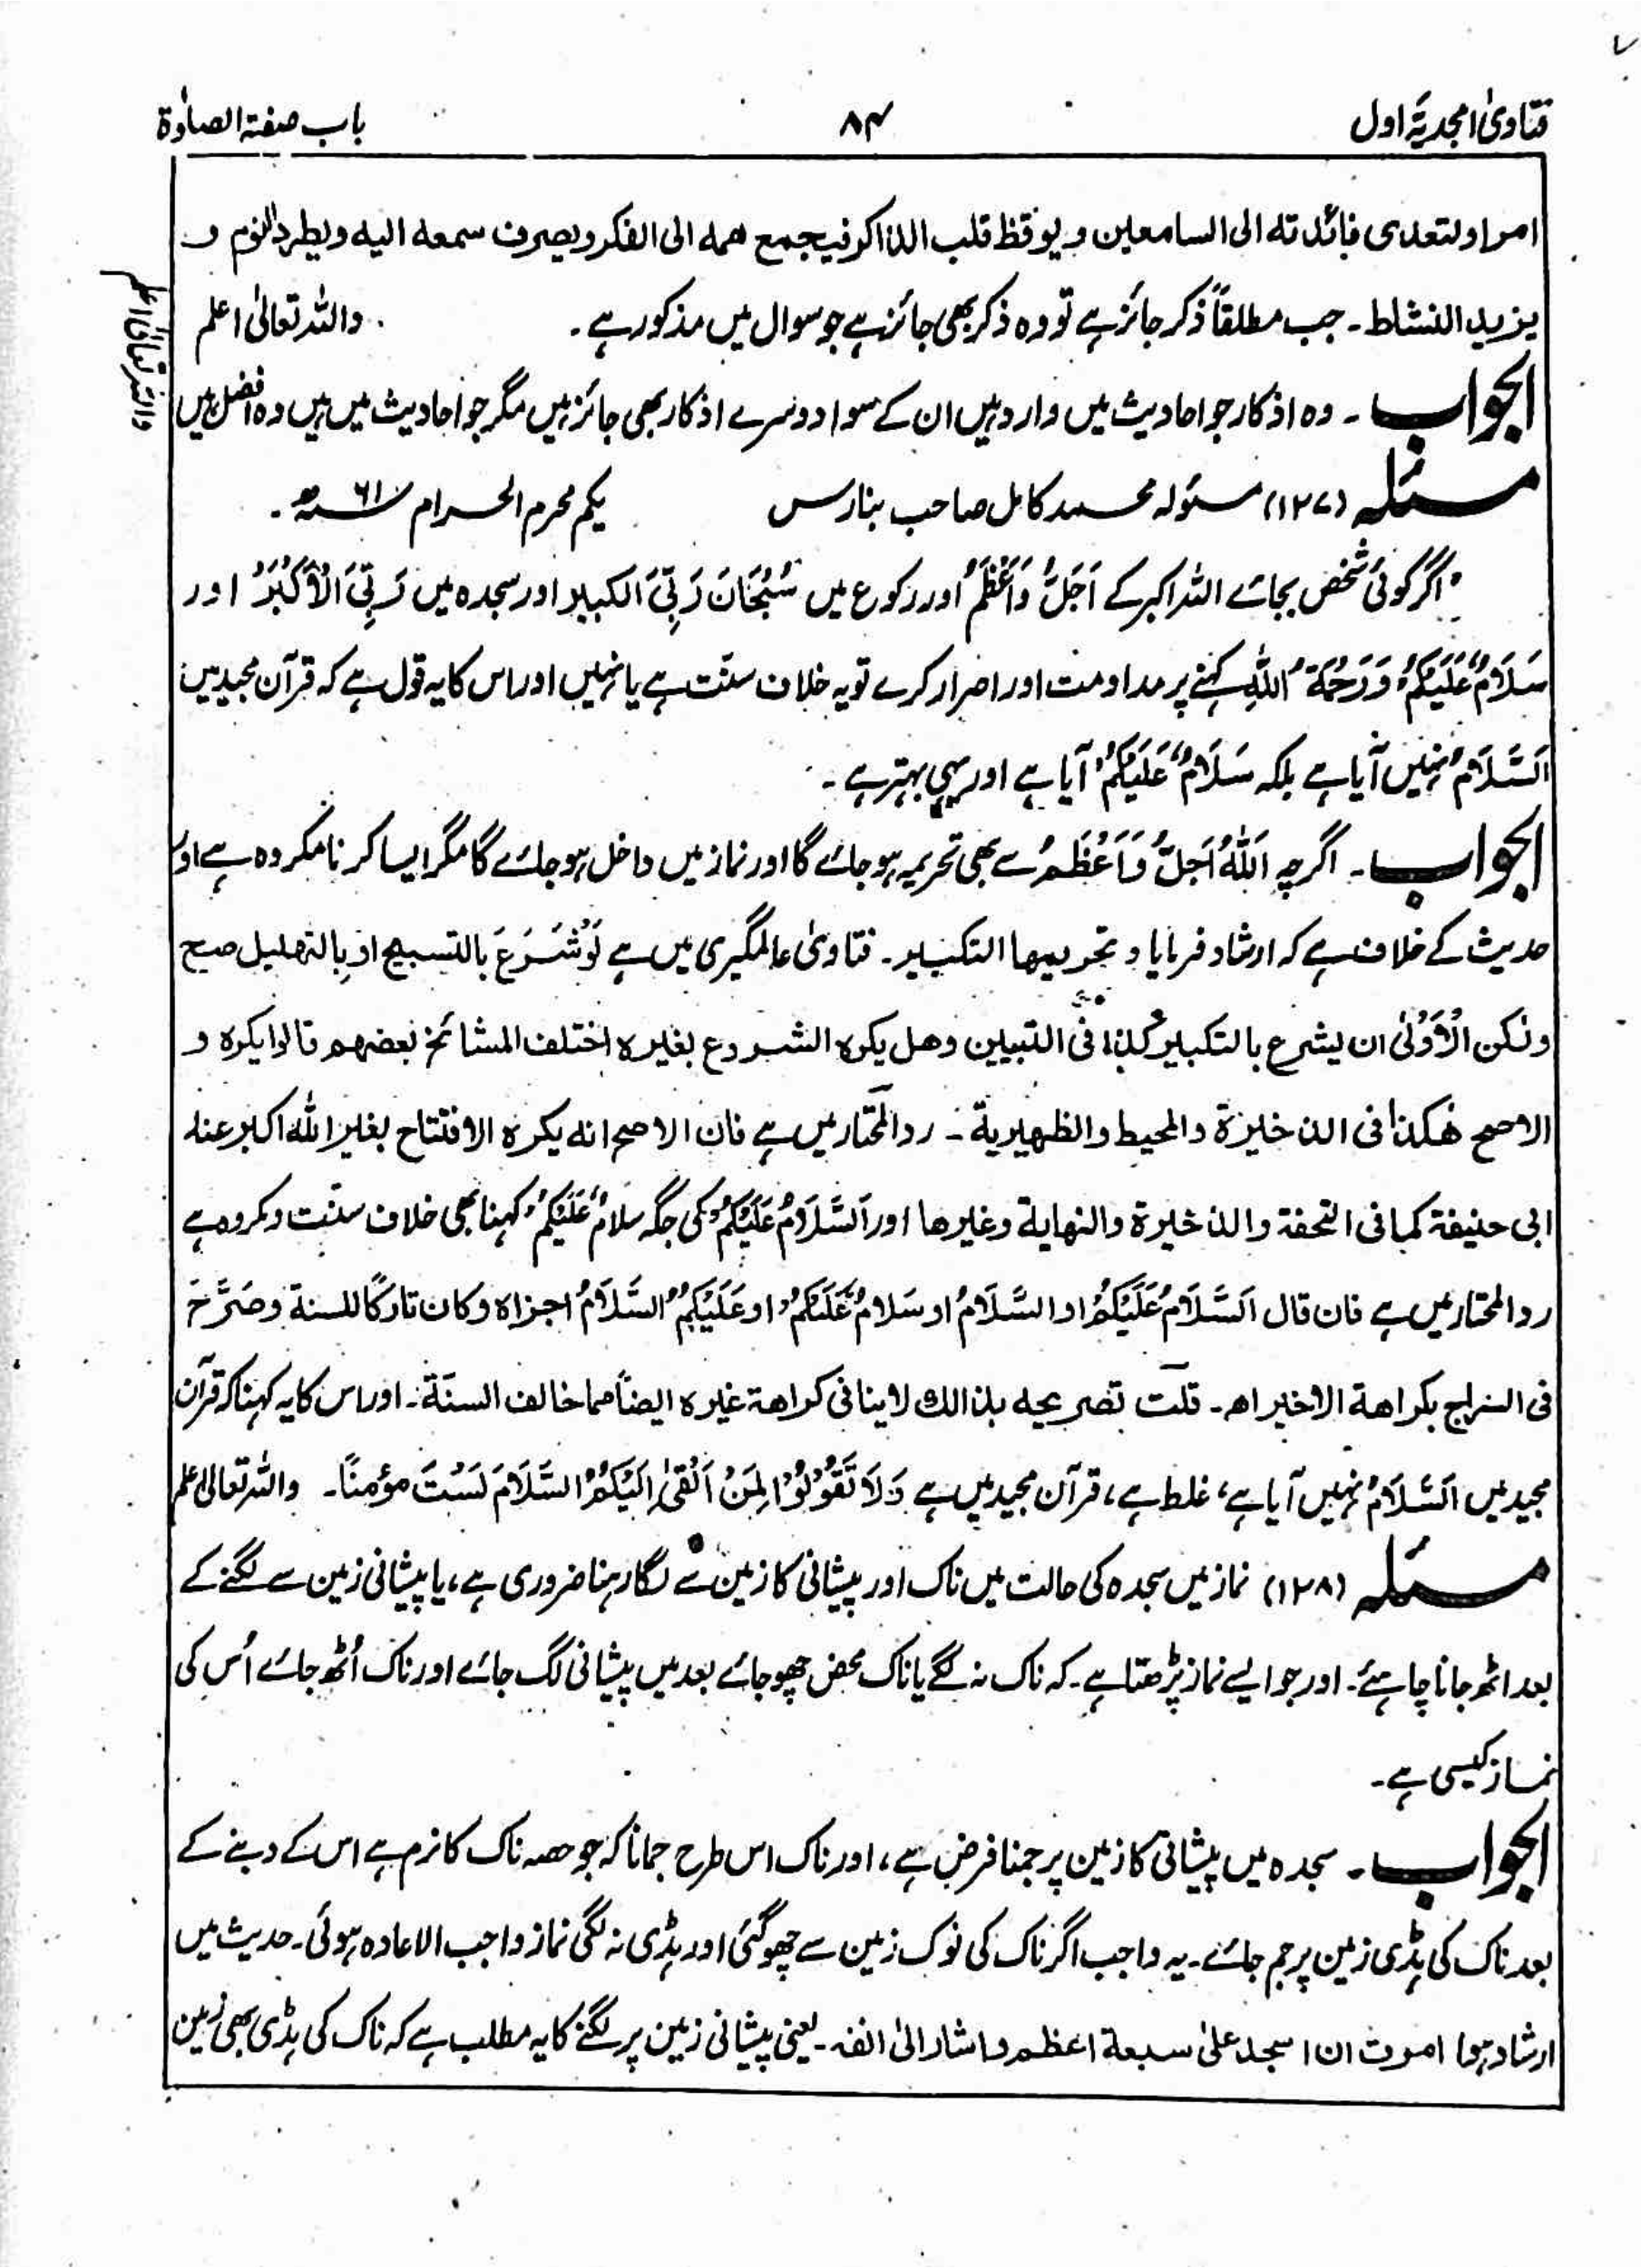 فتاویٰ امجدیہ اول
۸۴
باب صفۃ الصلوٰۃ
امر او لتعدی فائدتہ الی السامعین و یوقظ قلب الذاکر فیجمع ھمہ الی الفکر ویصرف سمعہ الیہ ویطرد النوم و
یزید النشاط۔ جب مطلقاً ذکر جائز ہے تو وہ ذکر بھی جائز ہے جو سوال میں مذکور ہے۔ واللہ تعالیٰ اعلم
الجواب۔ وہ اذکار جو احادیث میں وارد ہیں ان کے سوا دوسرے اذکار بھی جائز ہیں مگر جو احادیث میں ہیں وہ افضل ہیں
واللہ تعالیٰ اعلم
مسئلہ (۱۲۷) مسئولہ محمد کامل صاحب بنارس یکم محرم الحرام ۶۱ھ۔
اگر کوئی شخص بجائے اللہ اکبر کے اَجَلُّ وَاَعْظَمُ اور رکوع میں سُبْحَانَ رَبِّیَ الکبیر اور سجدہ میں رَبِّیَ الْاَکْبَرُ اور
سَلَامٌ عَلَیْکُمْ وَرَحْمَۃُ اللّٰہِ کہنے پر مداومت اور اصرار کرے تو یہ خلاف سنّت ہے یا نہیں اور اس کا یہ قول ہے کہ قرآن مجید میں
اَلسَّلَامُ نہیں آیا ہے بلکہ سَلَامٌ عَلَیْکُمْ آیا ہے اور یہی بہتر ہے۔
الجواب۔ اگرچہ اَللّٰہُ اَجَلُّ وَاَعْظَمُ سے بھی تحریمہ ہو جائے گا اور نماز میں داخل ہو جائے گا مگر ایسا کرنا مکروہ ہے اور
حدیث کے خلاف ہے کہ ارشاد فرمایا و تحریمھا التکبیر۔ فتاویٰ عالمگیری میں ہے لَوْ شَرَعَ بالتسبیح او بِالتھلیل صح
ولکن الْاَوْلیٰ ان یشرع بالتکبیر کذا فی التبیین وھل یکرہ الشروع بغیرہ اختلف المشائخ بعضھم قالوا یکرہ و
الاصح ھٰکذا فی الذخیرۃ والمحیط والظھیریۃ۔ ردالمحتار میں ہے فان الاصح انہ یکرہ الافتتاح بغیر اللّٰہ اکبر عند
ابی حنیفۃ کما فی التحفۃ والذخیرۃ والنھایۃ وغیرھا اور اَلسَّلَامُ عَلَیْکُمْ کی جگہ سلامٌ عَلَیْکُمْ کہنا بھی خلاف سنّت و مکروہ ہے
ردالمحتار میں ہے فان قال اَلسَّلَامُ عَلَیْکُمْ او السَّلَامُ او سَلامٌ عَلَیْکُمْ او عَلَیْکُمُ السَّلَامُ اجزاہ وکان تارکًا للسنۃ وصَرَّحَ
فی السراج بکراھۃ الاخیر اھ۔ قلت تصریحہ بذالک لاینافی کراھۃ غیرہ ایضًا مما خالف السنّۃ۔ اور اس کا یہ کہنا کہ قرآن
مجید میں اَلسَّلَامُ نہیں آیا ہے، غلط ہے، قرآن مجید میں ہے وَلَا تَقُوْلُوْا لِمَنْ اَلْقیٰ اِلَیْکُمُ السَّلَامَ لَسْتَ مؤمنًا۔ واللہ تعالیٰ اعلم
مسئلہ (۱۲۸) نماز میں سجدہ کی حالت میں ناک اور پیشانی کا زمین سے لگا رہنا ضروری ہے، یا پیشانی زمین سے لگنے کے
بعد اٹھ جانا چاہئے۔ اور جو ایسے نماز پڑھتا ہے۔ کہ ناک نہ لگے یا ناک محض چھو جائے بعد میں پیشانی لگ جائے اور ناک اُٹھ جائے اُس کی
نماز کیسی ہے۔
الجواب۔ سجدہ میں پیشانی کا زمین پر جمنا فرض ہے، اور ناک اس طرح جمانا کہ جو حصہ ناک کا نرم ہے اس کے دبنے کے
بعد ناک کی ہڈی زمین پر جم جائے۔ یہ واجب اگر ناک کی نوک زمین سے چھو گئی اور ہڈی نہ لگی نماز واجب الاعادہ ہوئی۔ حدیث میں
ارشاد ہوا امرت ان اسجد علیٰ سبعۃ اعظم و اشار الیٰ انفہ۔ یعنی پیشانی زمین پر لگنے کا یہ مطلب ہے کہ ناک کی ہڈی بھی زمین